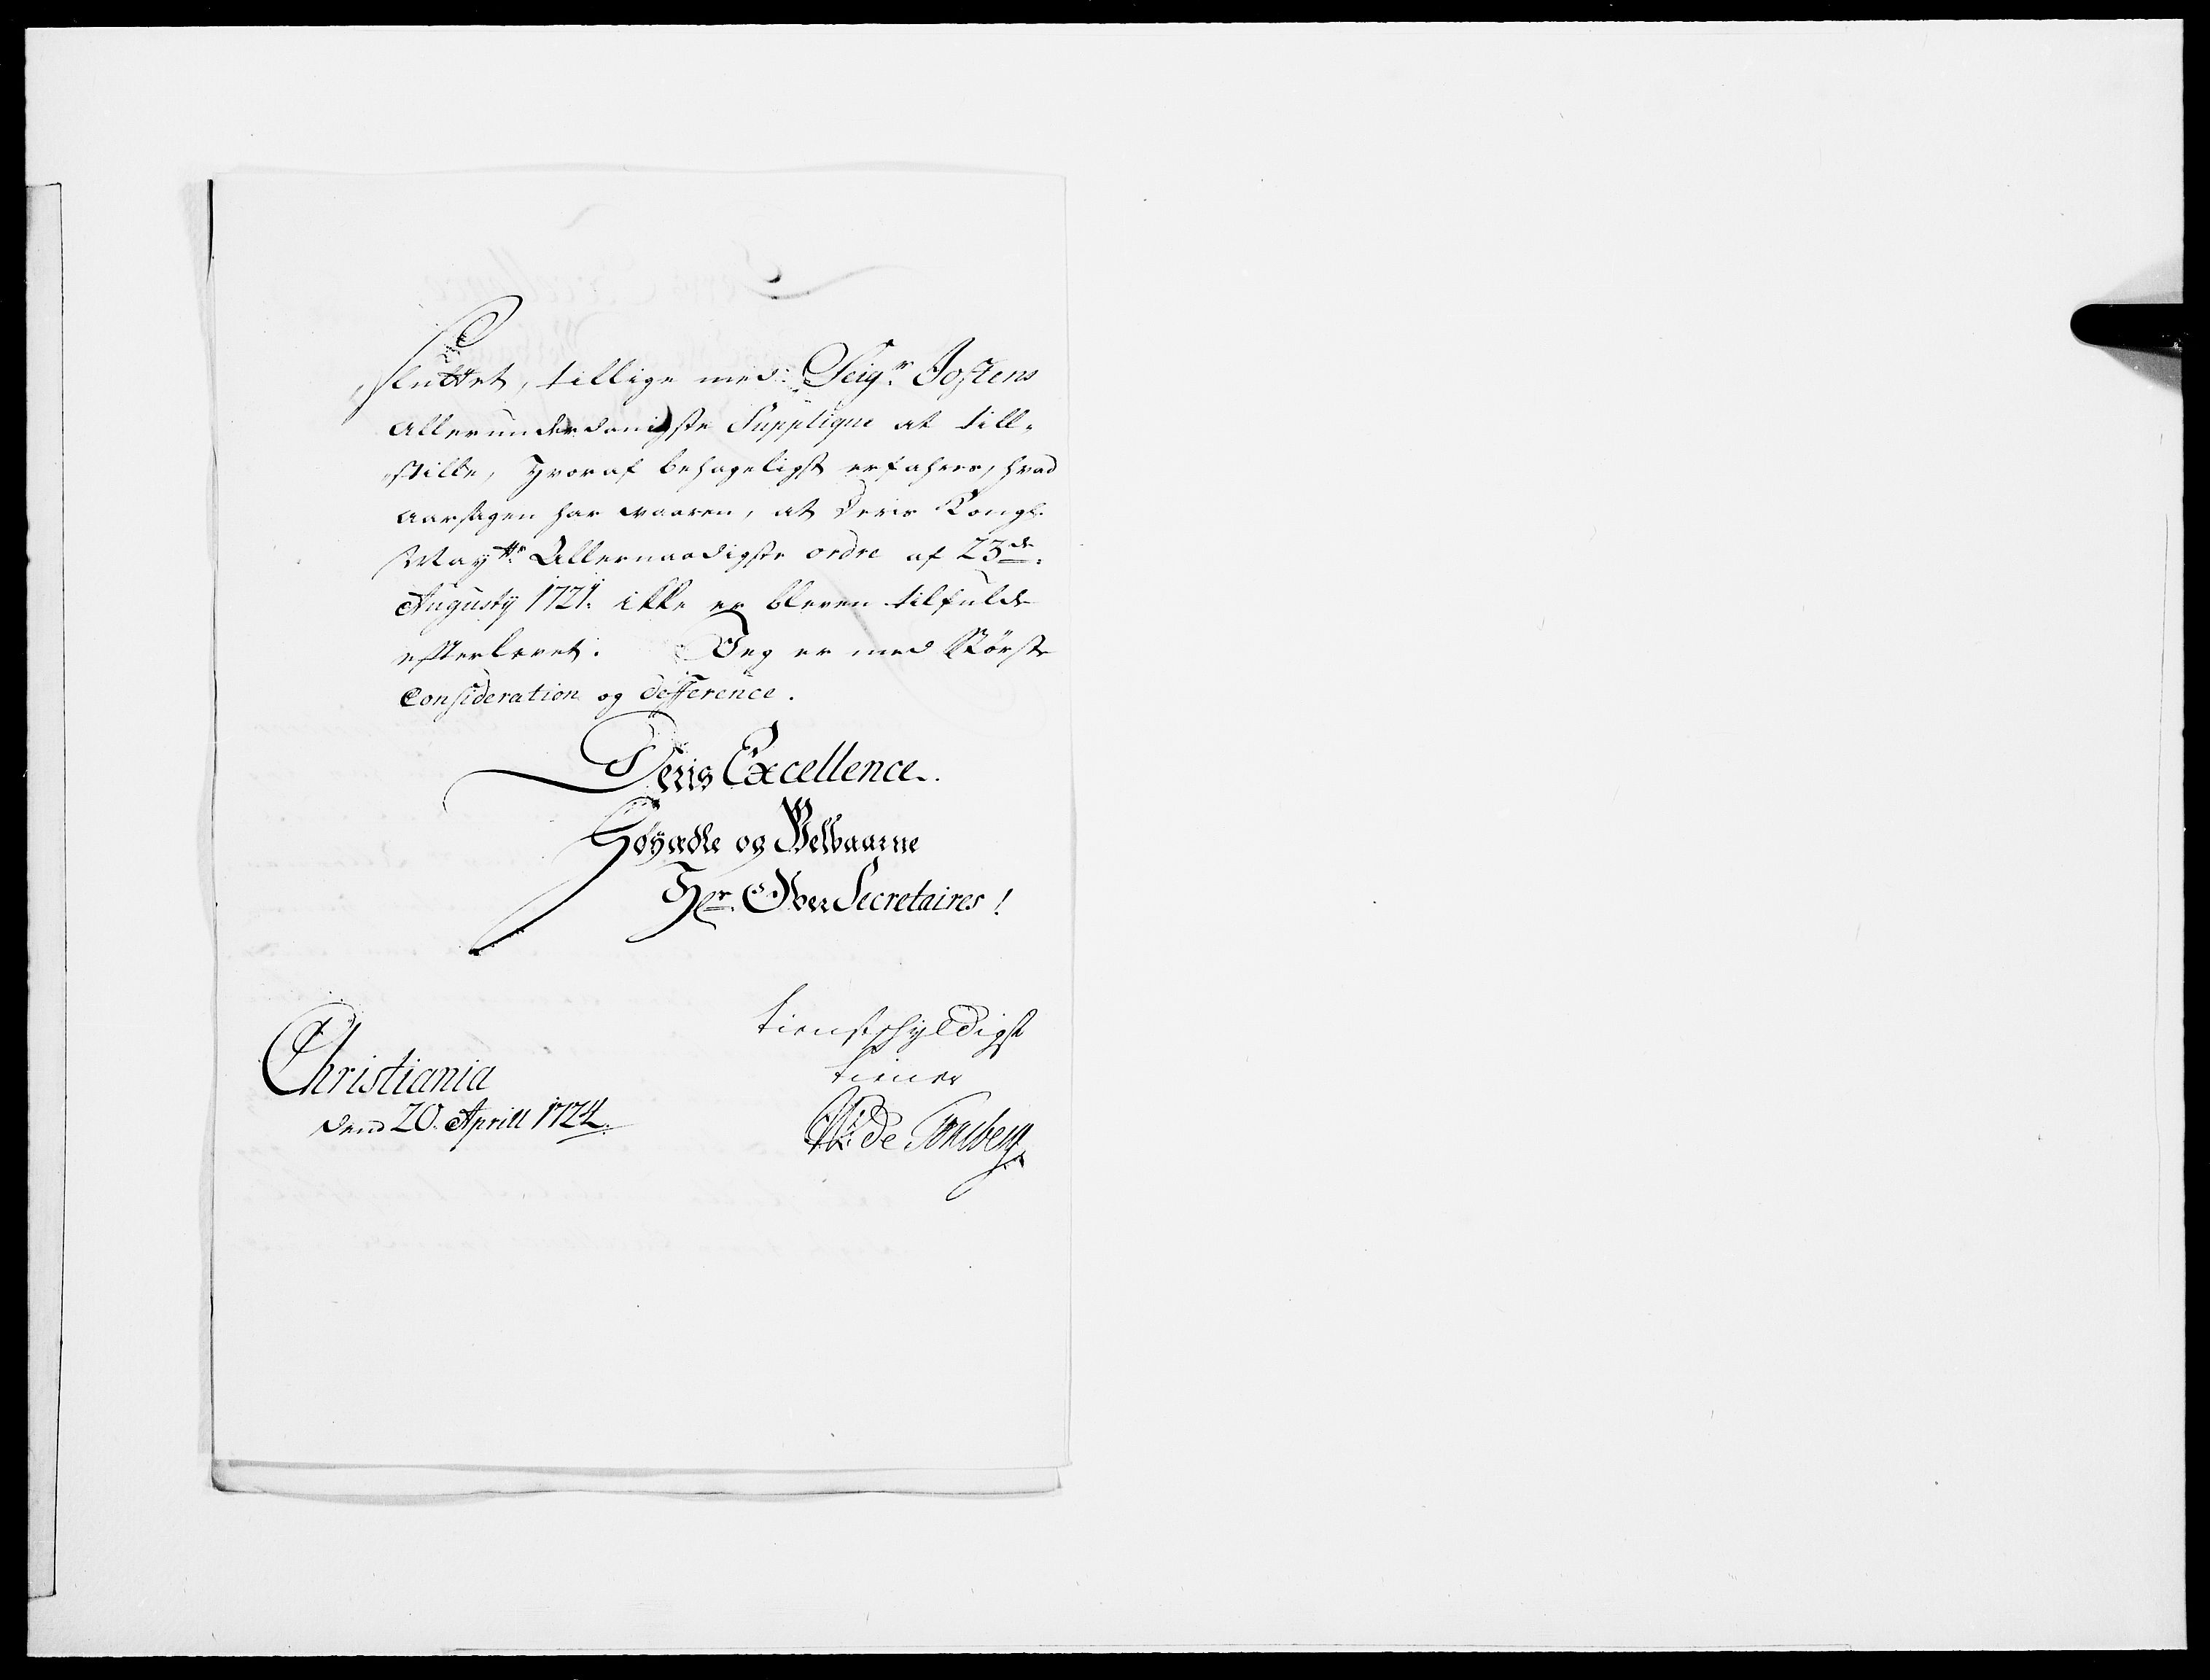 sluttet, tillige med Seigr. Jostens
allerunderdanigste Supplique at till-
stille, hvoraf behageligst erfahres, hvad
aarsagen har vaaren, at deris Kongl.
Mayttr. Allernaadigste ordre af 23de
Augusty 1721. ikke er bleven tilfulde
efterlevet. Jeg er med störste
Consideration og defference.
Deris Excellence.
Höyædle og Velbaarne
Hr. Over Secretaires!
tienstskyldigst
tiener
Christiania
dend 20. Aprill 1724.
de Tonsberg